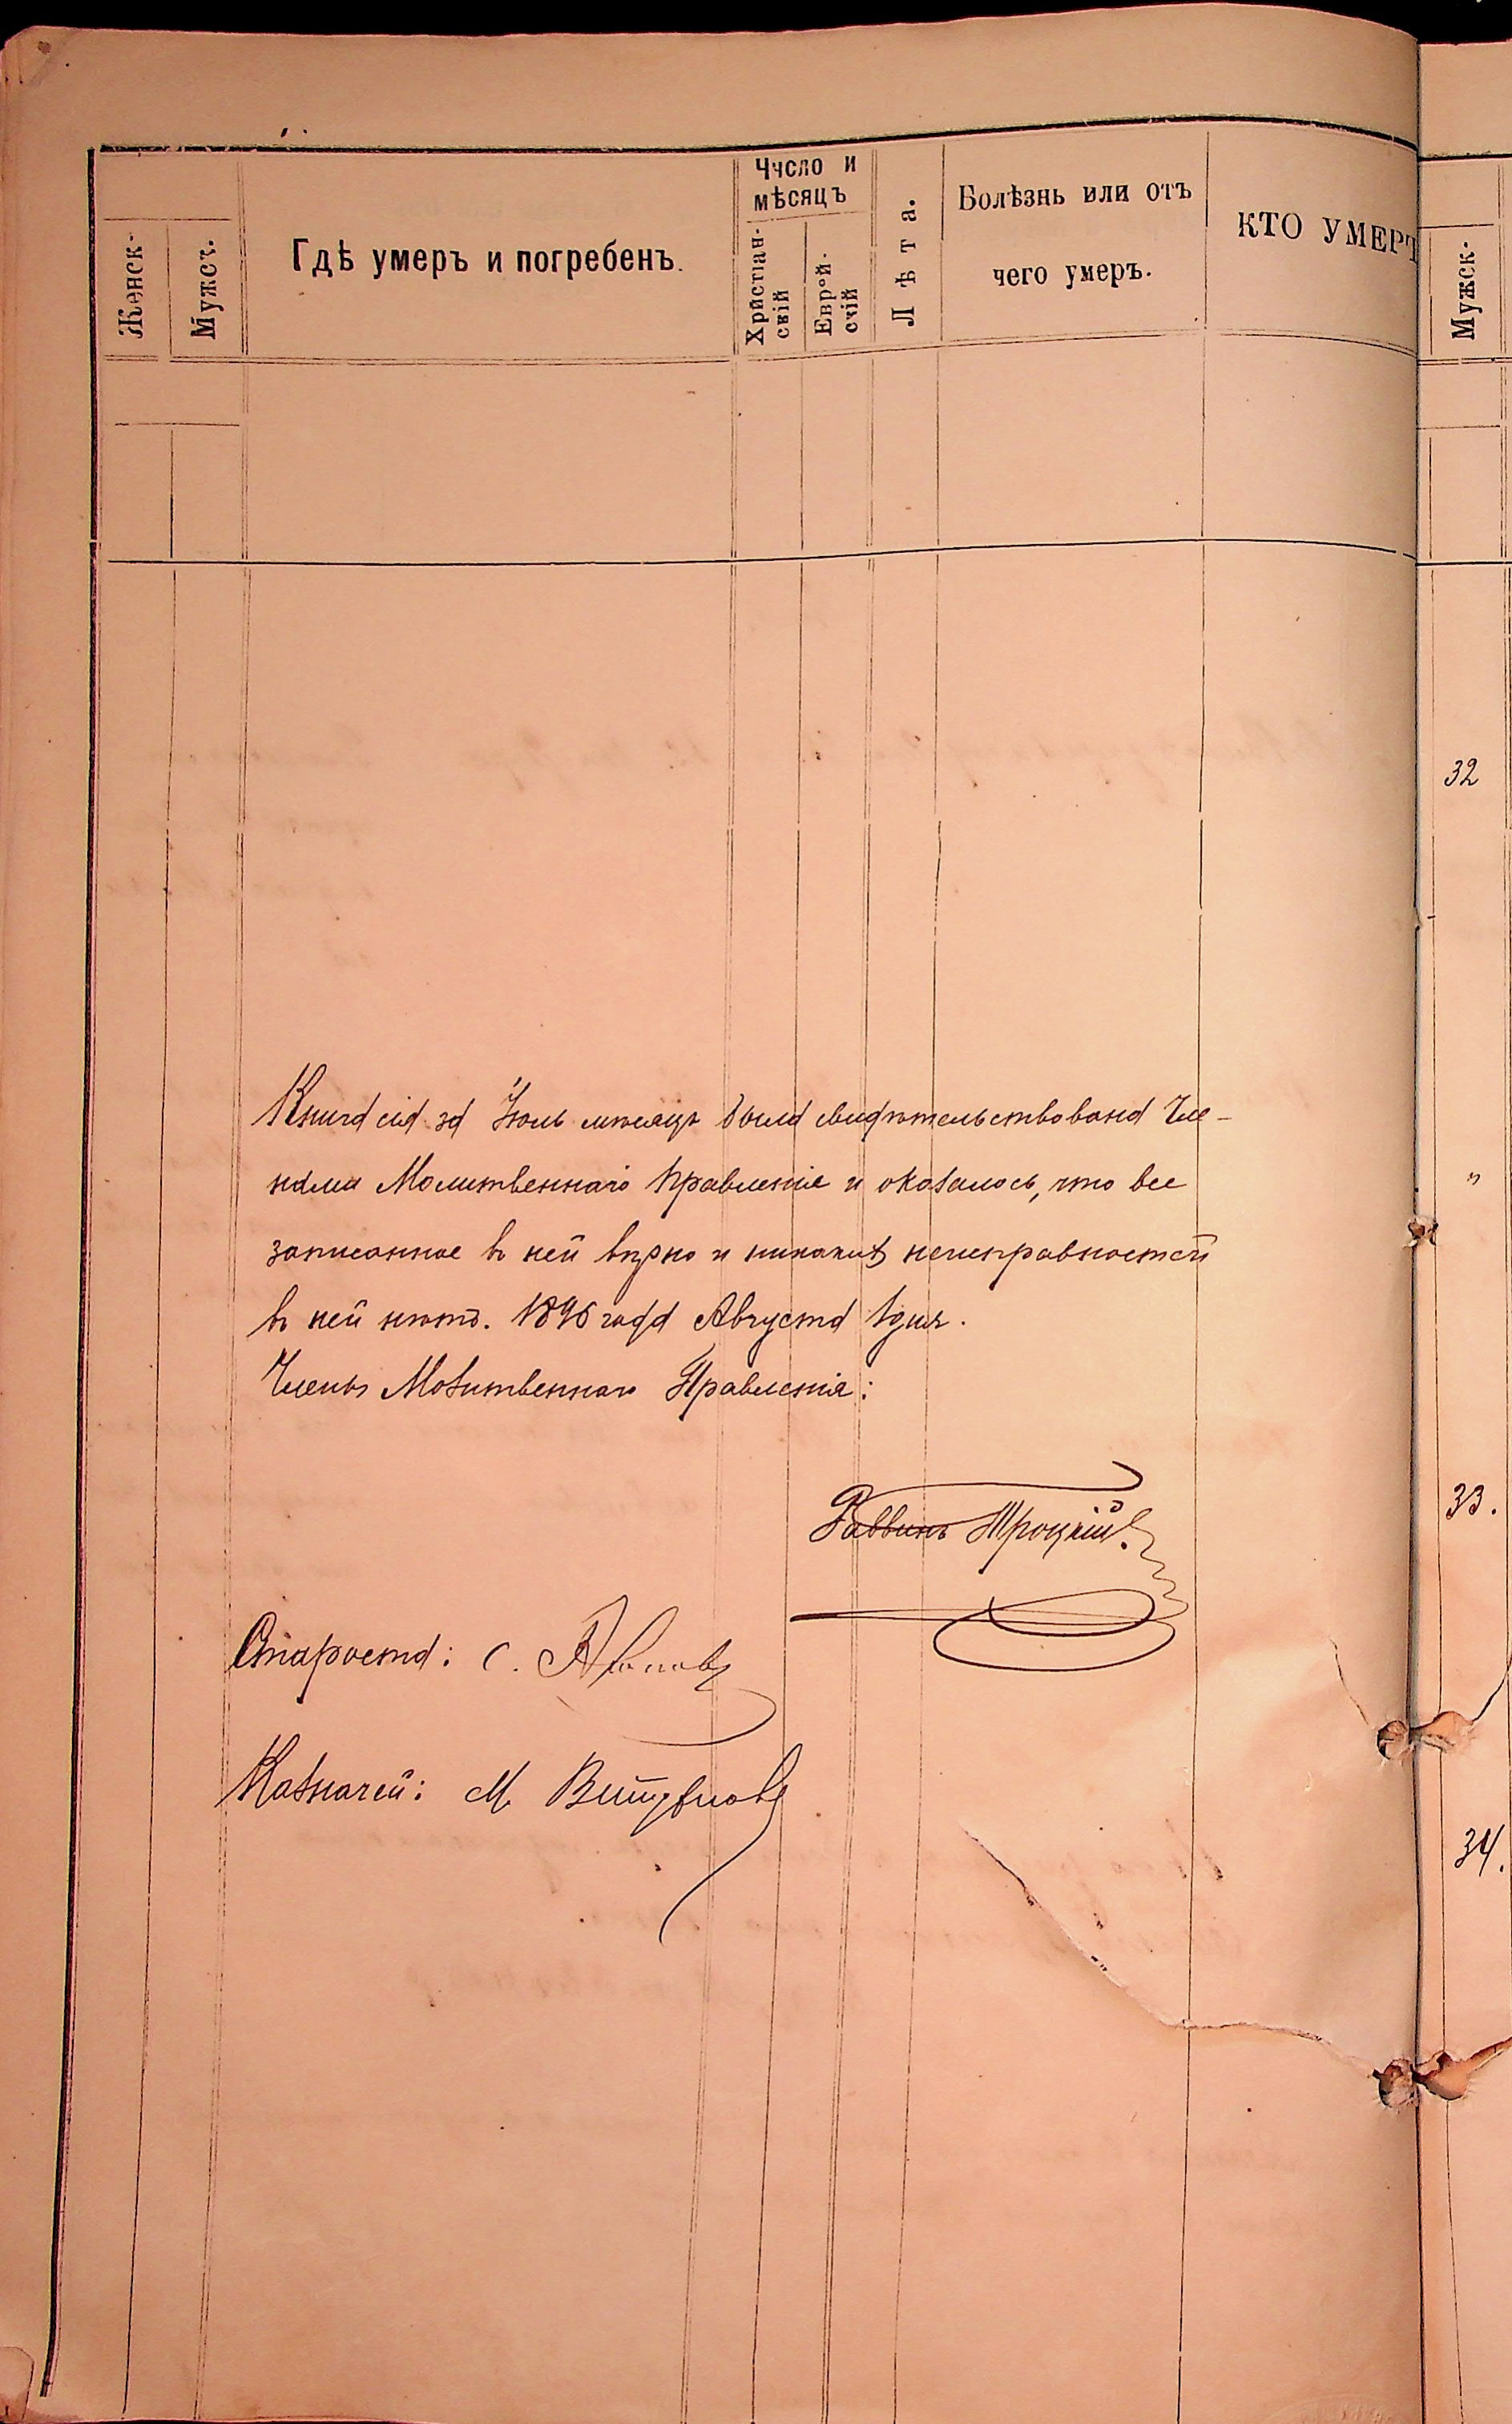 Число и
мѣсяцъ
Женск-
Мужск.
Гдѣ умеръ и погребенъ.
Христіан-
скій
Еврей-
скій
Лѣта.
Болѣзнь или отъ
чего умеръ.
КТО УМЕРЪ
Мужск-
32
Книга сія за Іюль мѣсяцъ была свидѣтельствована Чле-
нами Молитвеннаго Правленія и оказалось, что все
"
записанное въ ней вѣрно и никакихъ неисправностей
въ ней нѣтъ. 1896 года Августа 1 дня.
Члены Молитвеннаго Правленія:
Раввинъ Троцкій.
33.
Староста: С.
Казначей: М
34.